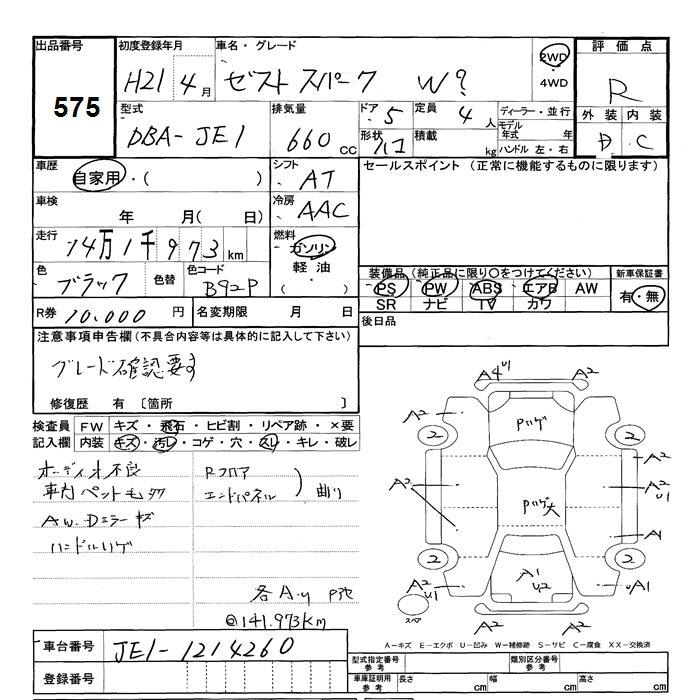 出品番号
575
初度登録年月
H21年4月
車名・グレード
ゼストスパーク W?
2WD
・4WD
評価点
R
外装 内装
D C
型式
DBA-JE1
排気量
660cc
ドア 5
形状 ハコ
定員 4人
積載 kg
ディーラー・並行
モデル年式 年
ハンドル 左・右
車歴
自家用・( )
シフト
AT
セールスポイント(正常に機能するものに限ります)
車検
年 月( 日)
冷房
AAC
走行
14万1千973km
燃料
ガソリン
軽油・
( )
色
ブラック
色替
色コード
B92P
装備品(純正品に限り○をつけてください)
PS PW ABS エアB AW
SR ナビ TV カワ
新車保証書
有・無
R券 10,000円
名変期限 月 日
後日品
注意事項申告欄(不具合内容等は具体的に記入して下さい)
グレード確認要す
修復歴 有 〔箇所 〕
検査員記入欄
FW キズ・飛石・ヒビ割・リペア跡・×要
内装 キズ・汚レ・コゲ・穴・スレ・キレ・破レ
オーディオ不良
車内ペット毛
AW. Dミラーキズ
ハンドルハゲ
Rフロア
エンドパネル
曲り
各A.U
◎141.973km
A4 U1
A2
A2
Pハゲ
2
2
A2
A2
A2
U1
Pハゲ大
A1
2
2
A2
U1
A1
U2
UA1
スペア
A2
A2
A-キズ E-エクボ U-凹み W-補修跡 S-サビ C-腐食 XX-交換済
車台番号
JE1-1214260
登録番号
型式指定番号 参考
類別区分番号 参考
車庫証明用 参考
長さ cm
幅 cm
高さ cm